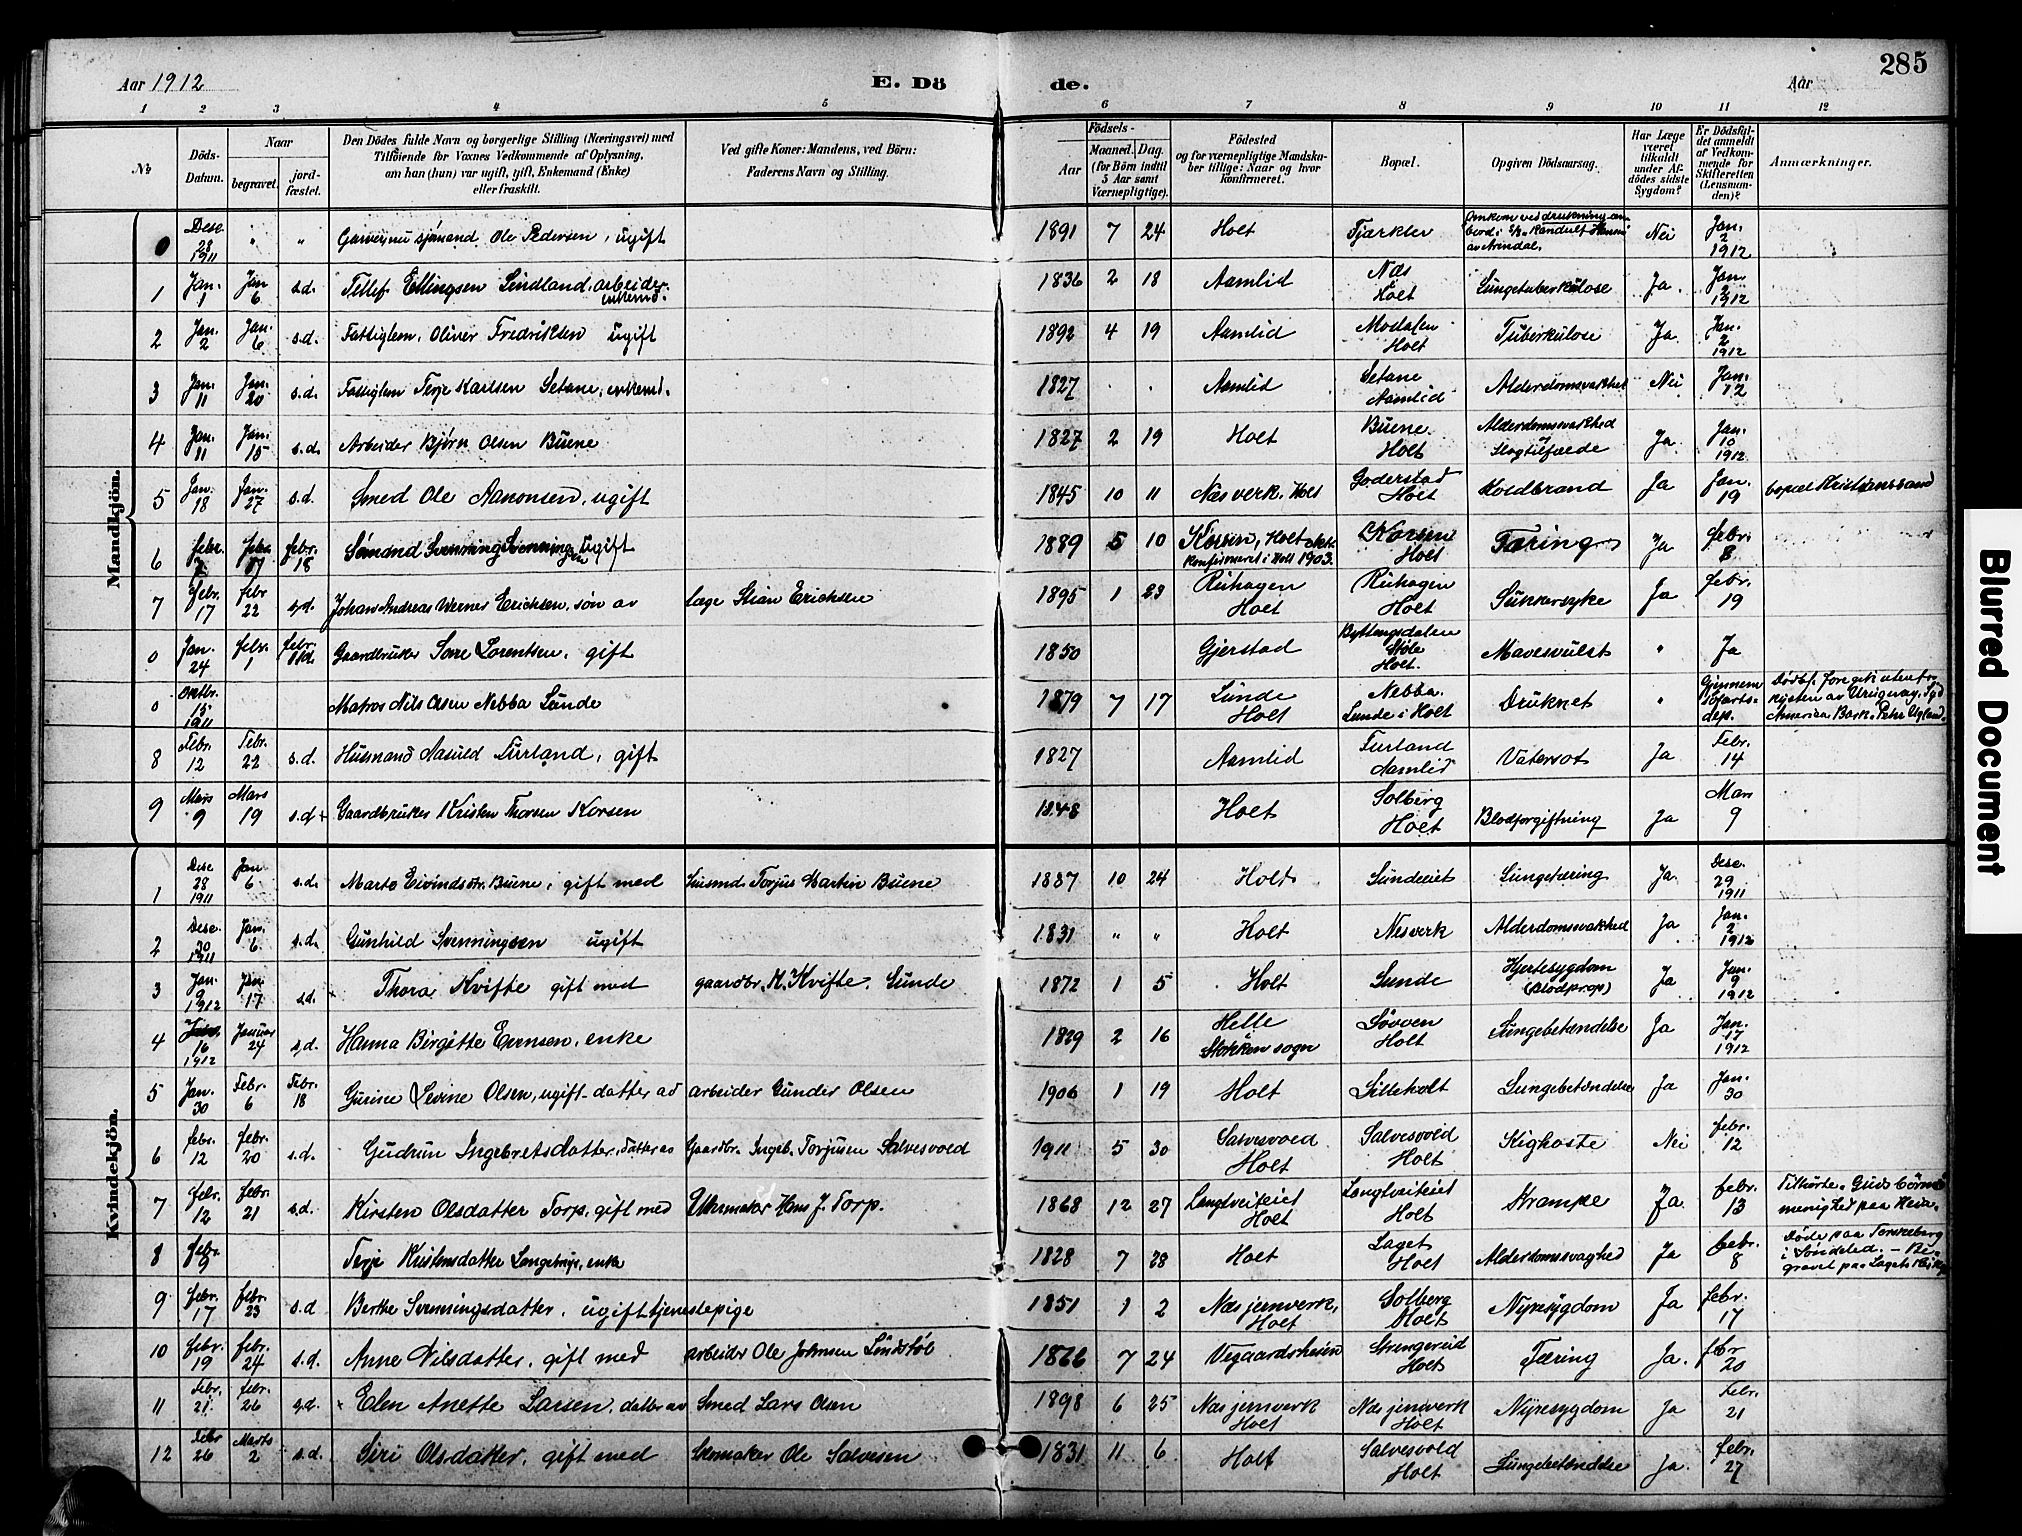 285
Aar 1912
E. Dö
de.
Aar
1 2 3 4 5 6 7 8 9 10 11 12
Nr
Döds-Datum.
Naar
begravet.
jord-fæstet.
Den Dödes fulde Navn og borgerlige Stilling (Næringsvei) med
Tilföiende for Voxnes Vedkommende af Oplysning,
om han (hun) var ugift, gift, Enkemand (Enke)
eller fraskilt.
Ved gifte Koner: Mandens, ved Börn:
Faderens Navn og Stilling.
Födsels-
Aar
Maaned. Dag.
(for Börn indtil
5 Aar samt
Værnepligtige).
Födested
og for værnepligtige Mandska-
ber tillige: Naar og hvor
konfirmeret.
Bopæl.
Opgiven Dödsaarsag.
Har Læge
været
tilkaldt
under Af-
dödes sidste
Sygdom?
Er Dödsfal-
det anmeldt
af Vedkom-
mende for
Skifteretten
(Lensman-
den)?
Anmærkninger.
Mandkjön.
0 Dese. 28 1911 " " sjömand Ole Pedersen, ugift 1891 7 24 Holt Fjærkler Omkom ved drukning om bord i av Arendal. Nei Jan. 2 1912
1 Jan. 1 Jan 6 s.d. Tellef Ellingsen Lindland, arbeider enkemd. 1836 2 18 Aamlid Næs Holt Lungetuberkulose Ja. Jan 2 1912
2 Jan. 2 Jan. 6 s.d. Fattiglem. Oliver Fredriksen ugift 1892 4 19 Aamlid Modalen Holt Tuberkulose Ja Jan. 2 1912
3 Jan. 11 Jan. 20 s.d. Fattiglem Terje Karlsen Setane, enkemd. 1827 . . Aamlid Setane Aamlid Alderdomsvakhet Nei Jan. 12
4 Jan. 11 Jan. 15 s.d. Arbeider Bjørn Olsen Buene 1827 2 19 Holt Buene. Holt Alderdomsvakhed Slagtilfælde Ja. Jan. 10 1912
5 Jan. 18 Jan. 27 s.d. Smed Ole Aanonsen, ugift 1845 10 11 Næs verk. Holt Goderstad Holt Koldbrand Ja Jan. 19 bopæl Kristianssand
6 febr. 7 febr. 17 febr. 18 Sømand Svenning Svenningsen ugift 1889 5 10 Korsen, Holt konfirmeret i Holt 1903. Korsen Holt Tæring Ja febr. 8
7 Febr. 17 febr 22 s.d. Johan Andreas Werner Erichsen, søn av læge Stian Erichsen 1895 1 23 Riihagen Holt Riihagen Holt Sukkersyke Ja febr. 19
0 Jan. 24 febr. 1 febr. Gaardbruker Lorentsen, gift 1850 Gjerstad Støle Holt. Mavesvulst " Ja
0 Oktbr. 15 1911 Matros Nils Olsen Nebba Lunde 1879 7 17 Lunde Holt Nebba. Lunde i Holt Druknet " Gjennem Søfarts-dep. Dødsf. foregik utenfor kysten av Uruguay, Syd America Bark. Peter Ugland.
8 Febr. 12 Febr. 22 s.d. Husmand Aasuld Furland, gift 1827 Aamlid Furland Aamlid Vatersot Ja Febr. 14
9 Mars 9 Mars 19 s.d + Gaardbruker Kristen Thorsen Korsen 1848 Holt Solberg Holt Blodforgiftning Ja Mars 9
Kvindekjön.
1 Dese. 28 1911 Jan 6 s.d. Marte Eivindsdtr. Buene, gift med husmd. Torjus Martin Buene 1837 10 24 Holt Sundeiet Lungetæring Ja. Dese. 29 1911
2 Dese. 30 1911 Jan. 6 s.d. Gunhild Svenningsen ugift 1831 " " Holt Nesverk Alderdomsvakhed Ja Jan. 2 1912
3 Jan. 9 1912 Jan 17 s.d. Thora Kvifte gift med gaardbr. K. Kvifte, Sunde 1872 1 5 Holt Sunde Hjertesygdom (Blodprop) Ja Jan 9 1912
4 Jan. 16 1912 Januar 24 s.d. Hanna Birgitte Evensen, enke 1829 2 16 Helle Stokken sogn Løvven Holt Lungebetændelse Ja Jan. 17 1912
5 Jan. 30 Febr. 6 Febr. 18 Gurine Levine Olsen, ugift - datter av arbeider Gunder Olsen 1906 1 19 Holt Lilleholt Lungebetændelse Ja Jan. 30
6 febr. 12 febr. 20 s.d. Gudrun Ingebretsdatter, datter av Gaardbr. Ingeb. Torjusen Salvesvold 1911 5 30 Salvesvold Holt Salvesvold Holt Kighoste Nei febr. 12
7 febr. 12 febr. 21 s.d. Kirsten Olsdatter Torp, gift med Uhrmaker Hans J. Torp. 1868 12 27 Langtveiteiet Holt Langtveiteiet Holt Krampe Ja. febr. 13 Tilhørte "Guds Børns" menighed paa
8 febr. 9 Terje Kristensdatter Langemyr, enke 1828 7 28 Holt Laget Holt Alderdomsvaghed Ja febr. 8 Døde paa Torskeberg i Søndeled. - Be-gravet paa Lagets
9 febr. 17 febr. 23 s.d Berthe Svenningsdatter, ugift tjenestepige 1851 1 2 Næs jernverk, Holt Solberg Holt Nyresygdom Ja febr. 17
10 febr. 19 febr. 24 s.d. Anne Nilsdatter, gift med arbeider Ole Johnsen Lindstøl 1866 7 24 Vegaardsheien Strengereid Holt Tæring Ja. febr 20
11 Febr. 21 febr. 26 s.d. Elen Anette Larsen, datter av Smed Lars Olsen 1898 6 25 Næs jernverk Holt Næs jernverk Holt Nyresygdom Ja Febr. 21
12 Febr 26 Marts 2 s.d. Siri Olsdatter, gift med Skomaker Ole Salvesen 1831 11 6 Holt Salvesvold Holt Lungebetændelse Ja. febr. 27
Blurred Document